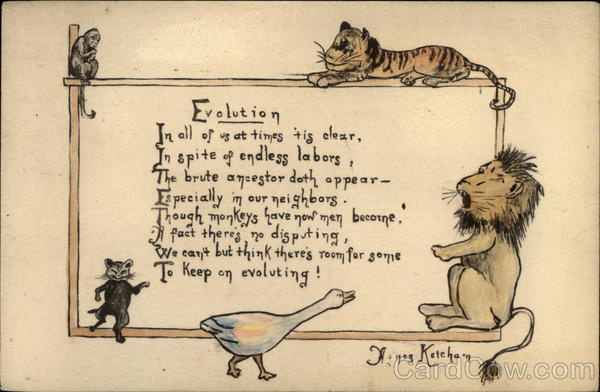 Evolution
In all of us at times 'tis clear,
In spite of endless labors,
The brute ancestor doth appear—
Especially in our neighbors.
Though monkeys have now men become,
A fact there's no disputing,
We can't but think there's room for some
To keep on evoluting!
Agnes Ketcham
CardCow.com